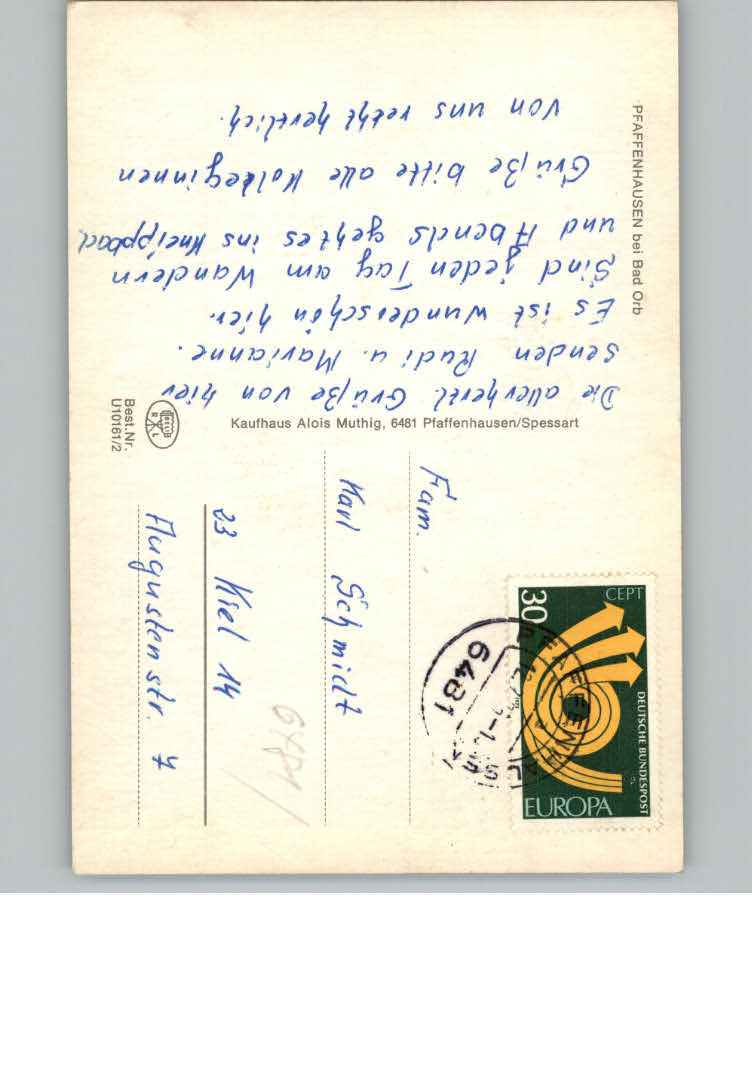 PFAFFENHAUSEN bei Bad Orb
Die allerherzl. Grüße von hier
senden Rudi u. Marianne.
Es ist wunderschön hier.
Sind jeden Tag am Wandern
und Abends geht es ins Kneippbad.
Grüße bitte alle Kolleginnen
von uns recht herzlich.
Kaufhaus Alois Muthig, 6481 Pfaffenhausen/Spessart
Best.Nr.
U10161/2
Fam.
Karl Schmidt
23 Kiel 14
Augustenstr. 7
6481
CEPT
30
DEUTSCHE BUNDESPOST
EUROPA
6481